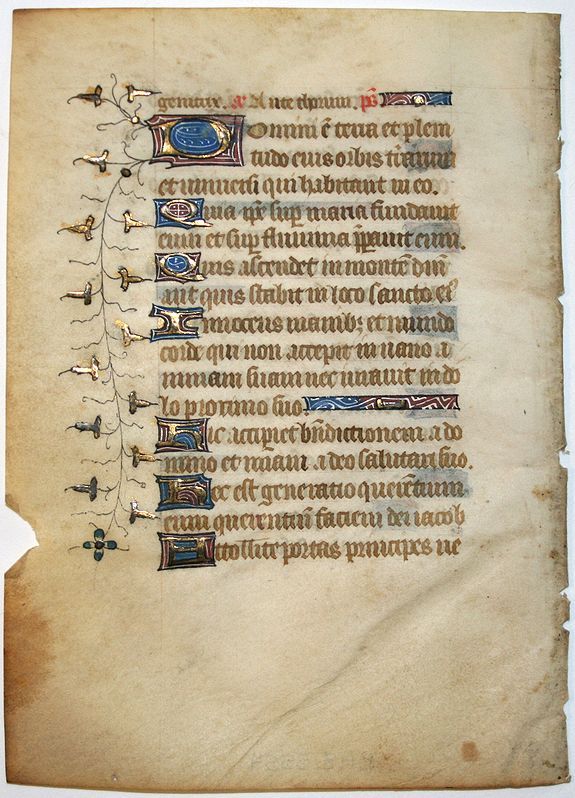 genitrix. a͞ Ante thorum. p͞s
Domini ē terra et pleni
tudo eius orbis trarum
et universi qui habitant in eo.
Quia ip̄e sup̄ maria fundavit
eum et sup̄ flumina p̄pavit eum.
Quis ascendet in montē dn̄i
aut quis stabit in loco sancto eiꝰ
Innocens manibꝫ et mundo
corde qui non accepit in vano a
nimam suam nec iuravit in do
lo proximo suo.
Hic accipiet bn̄dictionem a do
mino et mīam a deo salutari suo.
Hec est generatio querētium
eum querentiū faciem dei iacob
Attollite portas principes ve